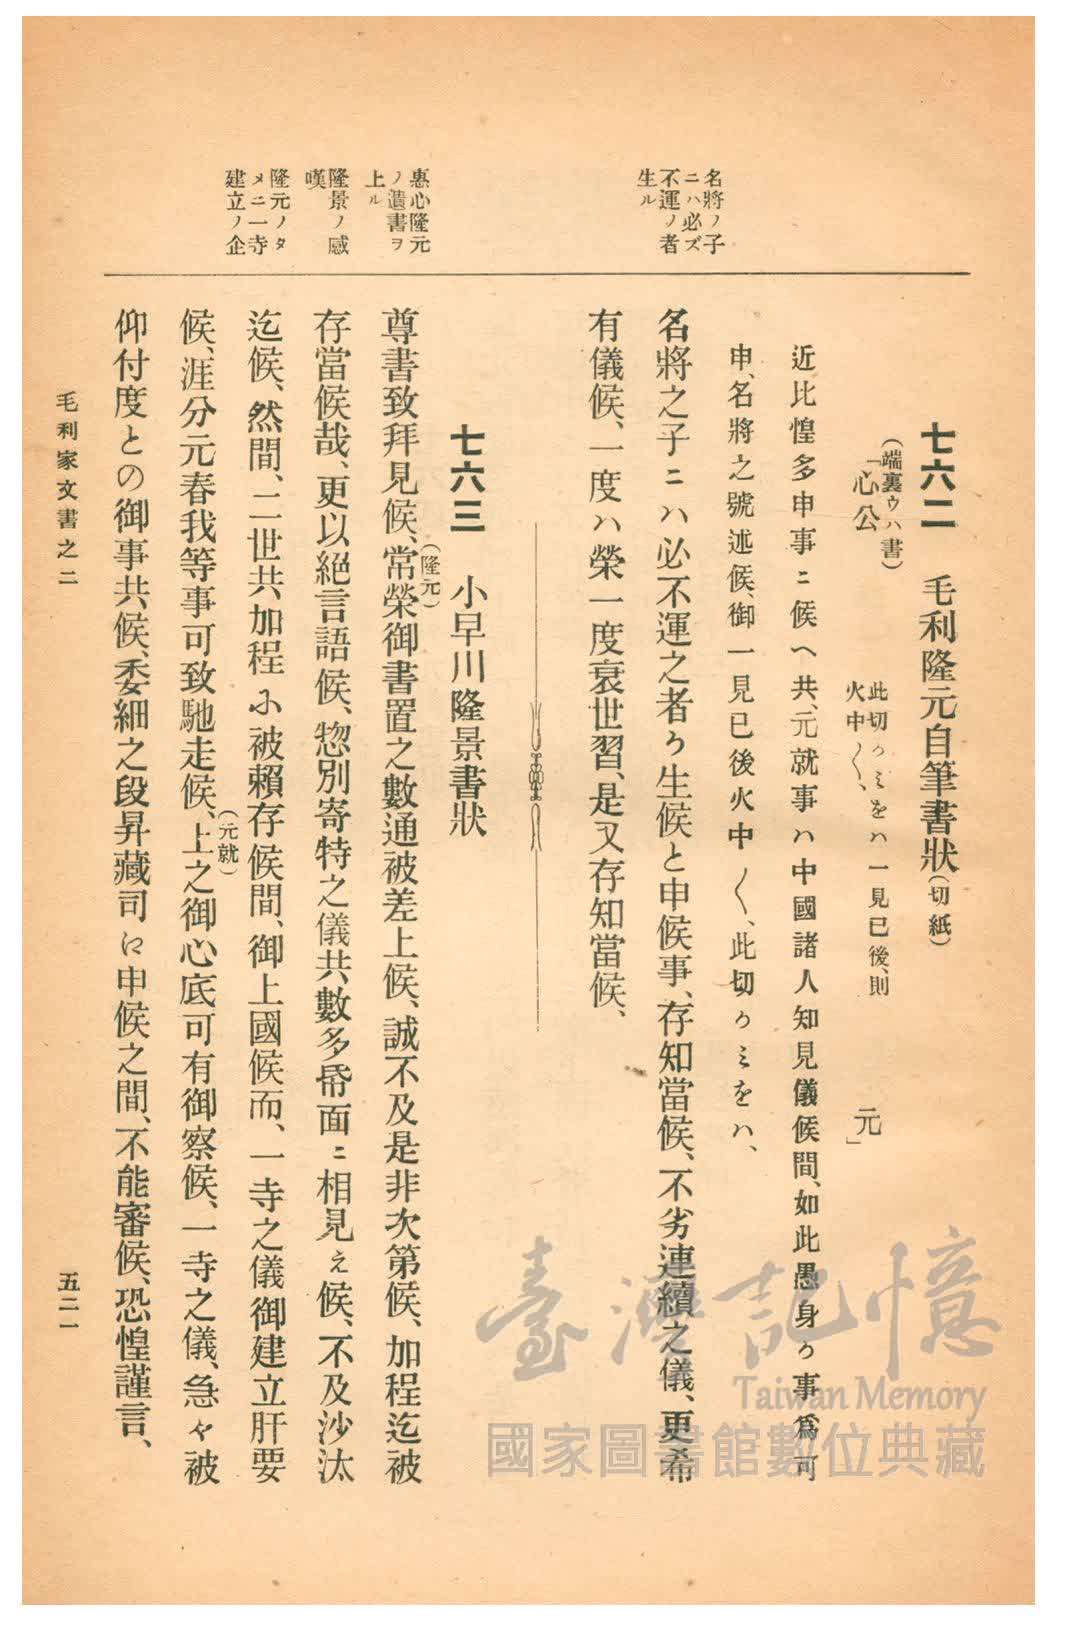 七六二　毛利隆元自筆書狀(切紙)
(端裏ウハ書)
「心公
此切ゥミをハ一見已後、則
火中〱、
元」
近比惶多申事ニ候へ共、元就事ハ中國諸人知見儀候間、如此愚身ゥ事爲可
申、名將之號述候、御一見已後火中〱、此切ゥミをハ、
名將之子ニハ必不運之者ゥ生候と申候事、存知當候、不劣連續之儀、更希
有儀候、一度ハ榮一度衰世習、是又存知當候、
名將ノ子
ニハ必ズ
不運ノ者
生ル
七六三　小早川隆景書狀
尊書致拜見候、常榮(隆元)御書置之數通被差上候、誠不及是非次第候、加程迄被
存當候哉、更以絕言語候、惣別寄特之儀共數多帋面ニ相見え候、不及沙汰
迄候、然間、二世共加程ふ被賴存候間、御上國候而、一寺之儀御建立肝要
候、涯分元春我等事可致馳走候、上(元就)之御心底可有御察候、一寺之儀、急々被
仰付度との御事共候、委細之段昇藏司に申候之間、不能審候、恐惶謹言、
惠心隆元
ノ遺書ヲ
上ル
隆景ノ感
嘆
隆元ノタ
メニ一寺
建立ノ企
毛利家文書之二
五二一
臺灣記憶
Taiwan Memory
國家圖書館數位典藏